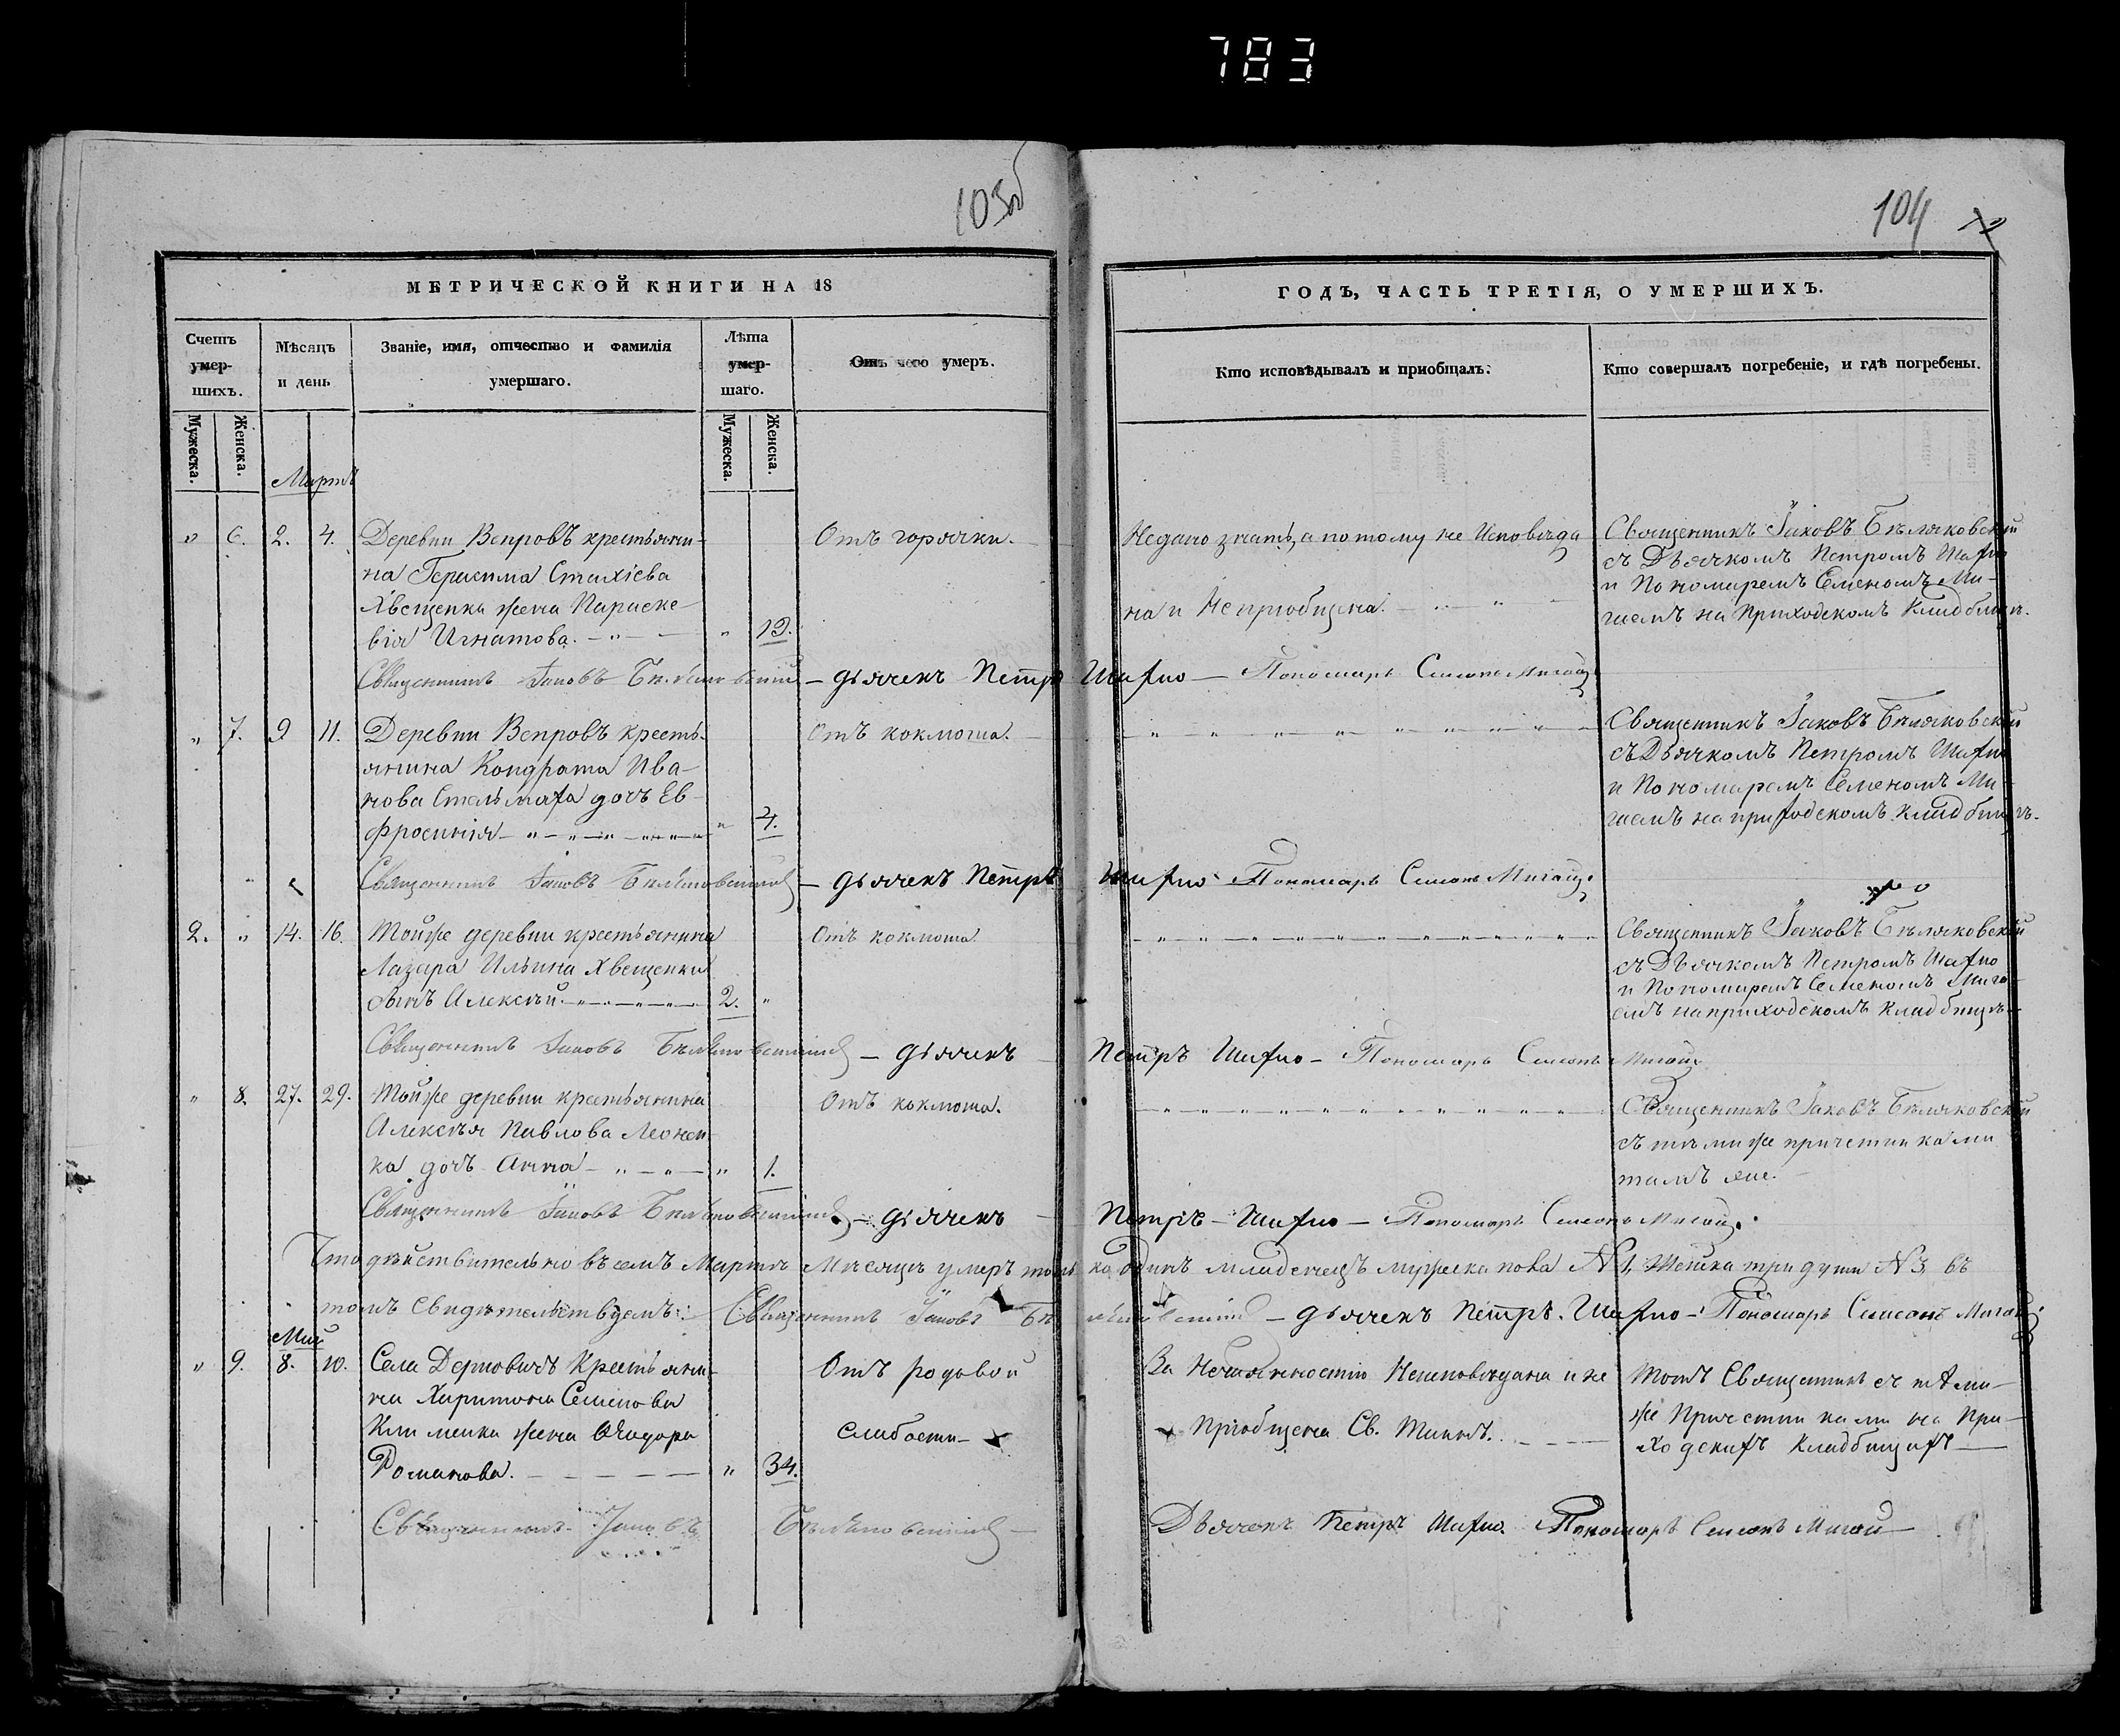 783
103об
104
МЕТРИЧЕСКОЙ КНИГИ НА 18
ГОДЪ, ЧАСТЬ ТРЕТІЯ, О УМЕРШИХЪ.
Счетъ умер-шихъ.
Мѣсяцъ и день
Званіе, имя, отчество и фамилія умершаго.
Лѣта умер-шаго.
Отъ чего умеръ.
Кто исповѣдывалъ и пріобщалъ.
Кто совершалъ погребеніе, и гдѣ погребены.
Мужеска.
Женска.
Мужеска.
Женска.
Мартъ
„ 6. 2. 4. Деревни Вепровъ крестьяни-
на Герасима Стахіева
Хвещенка жена Параске-
вія Игнатова. „ 19.
Отъ горячки.
Недано знать, а потому не Исповѣда
на и Непріобщена.
Священникъ Іаковъ Бѣляковскій
съ Дьячкомъ Петромъ Шахно
и Пономаремъ Семеномъ Ми-
гаемъ на Приходскомъ Кладбищѣ.
Священникъ Іаковъ Бѣляковскій – дьячекъ Петръ Шахно – Пономарь Симонъ Мигай
„ 7. 9 11. Деревни Вепровъ кресть-
янина Кондрата Ива-
нова Стальмаха дочь Ев-
фросинія „ 4.
Отъ кокмоша.
Священникъ Іаковъ Бѣляковскій
съ Дьячкомъ Петромъ Шахно
и Пономаремъ Семеномъ Ми-
гаемъ на приходскомъ кладбищѣ.
Священникъ Іаковъ Бѣляковскій – дьячекъ Петръ Шахно – Пономарь Симонъ Мигай
2. „ 14. 16. Тойже деревни крестьянина
Лазара Ильина Хвещенка
сынъ Алексѣй. 2. „
Отъ кокмоша.
Священникъ Іаковъ Бѣляковскій
съ Дьячкомъ Петромъ Шахно
и Пономаремъ Семеномъ Мига-
емъ на приходскомъ кладбищѣ
Священникъ Іаковъ Бѣляковскій – дьячекъ Петръ Шахно – Пономарь Симонъ Мигай
„ 8. 27. 29. Тойже деревни крестьянина
Алексѣя Павлова Леонен-
ка дочь Анна „ 1.
Отъ кокмоша.
Священникъ Іаковъ Бѣляковскій
съ тѣмиже причетниками
тамъ же.
Священникъ Іаковъ Бѣляковскій – дьячекъ Петръ – Шахно – Пономарь Симонъ Мигай
Что дѣйствительно въ семъ Мартѣ Мѣсяцѣ умеръ только одинъ младенецъ мужеска пола N 1, Женска три души N 3, въ
томъ Свидѣтельствуемъ: Священникъ Іаковъ Бѣляковскій – дьячекъ Петръ. Шахно – Пономарь Симеонъ Мигай
Май
„ 9. 8. 10. Села Дерновичъ Крестьяни-
на Харитона Семенова
Клименка жена Ѳеодора
Романова. „ 34.
Отъ родовой
слабости
За Нечаянностію Неисповѣдана и не
Пріобщена Св. Таинъ.
Тотъ Священникъ съ тѣми-
же Причетниками на При-
ходскихъ Кладбищахъ
Священникъ Іаковъ Бѣляковскій
Дьячекъ Петръ Шахно. Пономарь Симонъ Мигай